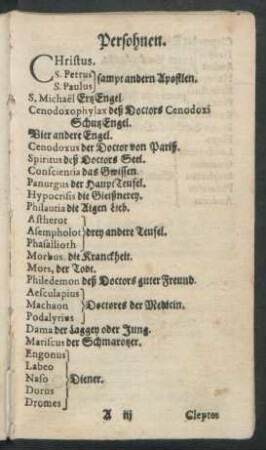 Persohnen.
CHristus.
S. Petrus
S. Paulus } sampt andern Apostlen.
S. Michaël Ertz Engel
Cenodoxophylax deß Doctors Cenodoxi
Schutz Engel.
Vier andere Engel.
Cenodoxus der Doctor von Pariß.
Spiritus deß Doctors Seel.
Conscientia das Gwissen.
Panurgus der Haupt Teufel.
Hypocrisis die Gleißnerey.
Philautia die Aigen Lieb.
Astherot
Asempholot } drey andere Teufel.
Phasallioth
Morbus, die Kranckheit.
Mors, der Todt.
Philedemon deß Doctors guter Freund.
Aesculapius
Machaon } Doctores der Medicin.
Podalyrius
Dama der Laggey oder Jung.
Mariscus der Schmarotzer.
Engonus
Labeo
Naso } Diener.
Dorus
Dromes
A iij Cleptes